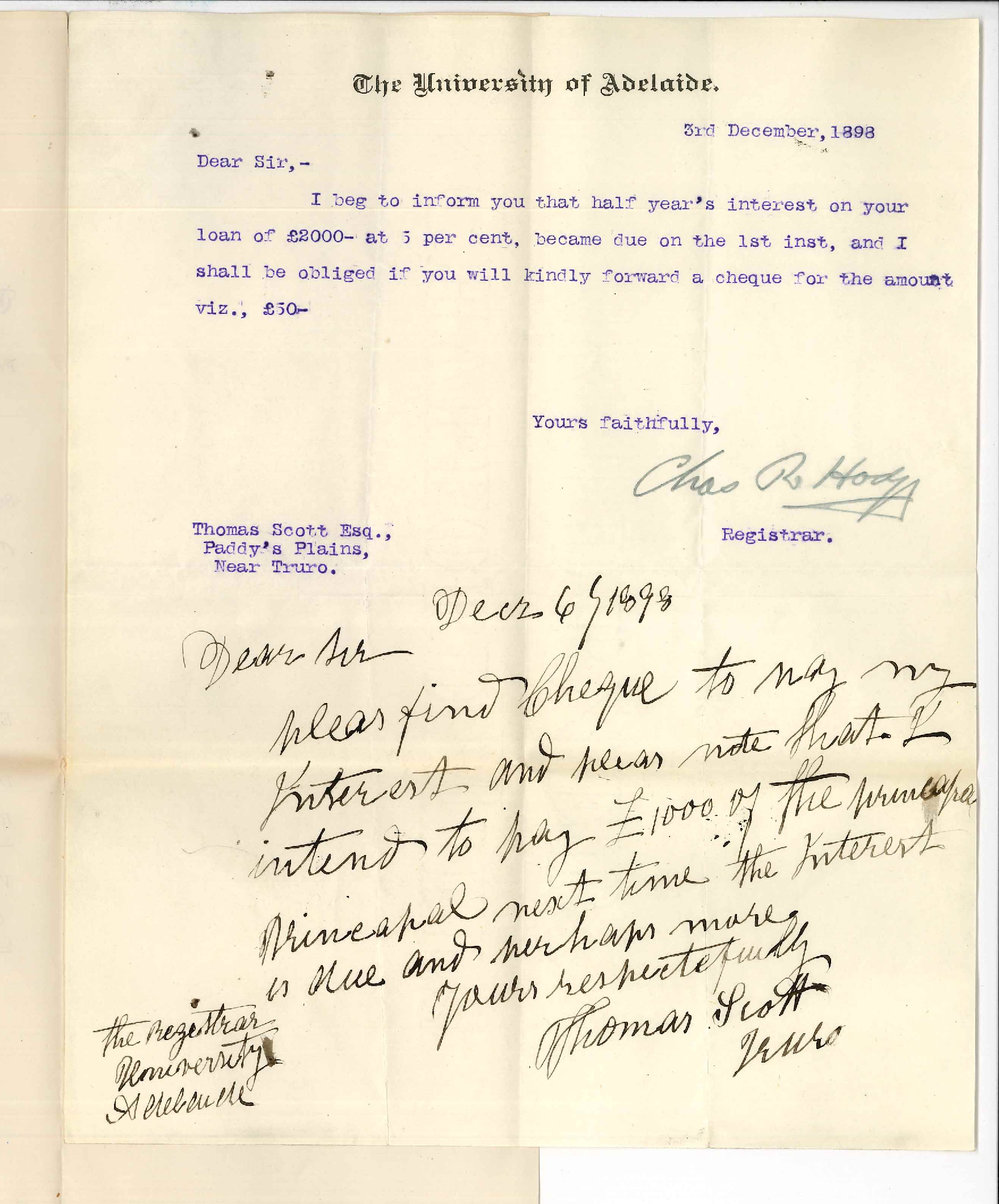 The University of Adelaide.
3rd December, 1898
Dear Sir,-
I beg to inform you that half year's interest on your
loan of £2000- at 5 per cent, became due on the 1st inst, and I
shall be obliged if you will kindly forward a cheque for the amount
viz., £50-
Yours faithfully,
Chas R. Hodge
Registrar.
Thomas Scott Esq.,
Paddy's Plains,
Near Truro.
Decr 6/1898
Dear Sir
pleas find Cheque to pay my
Interest and pleas note that I
intend to pay £1000 of the princapa
Princapal next time the Interest
is due and perhaps more
Yours respectefully
Thomas Scott
Truro
the Regestrar
University
Adelaide